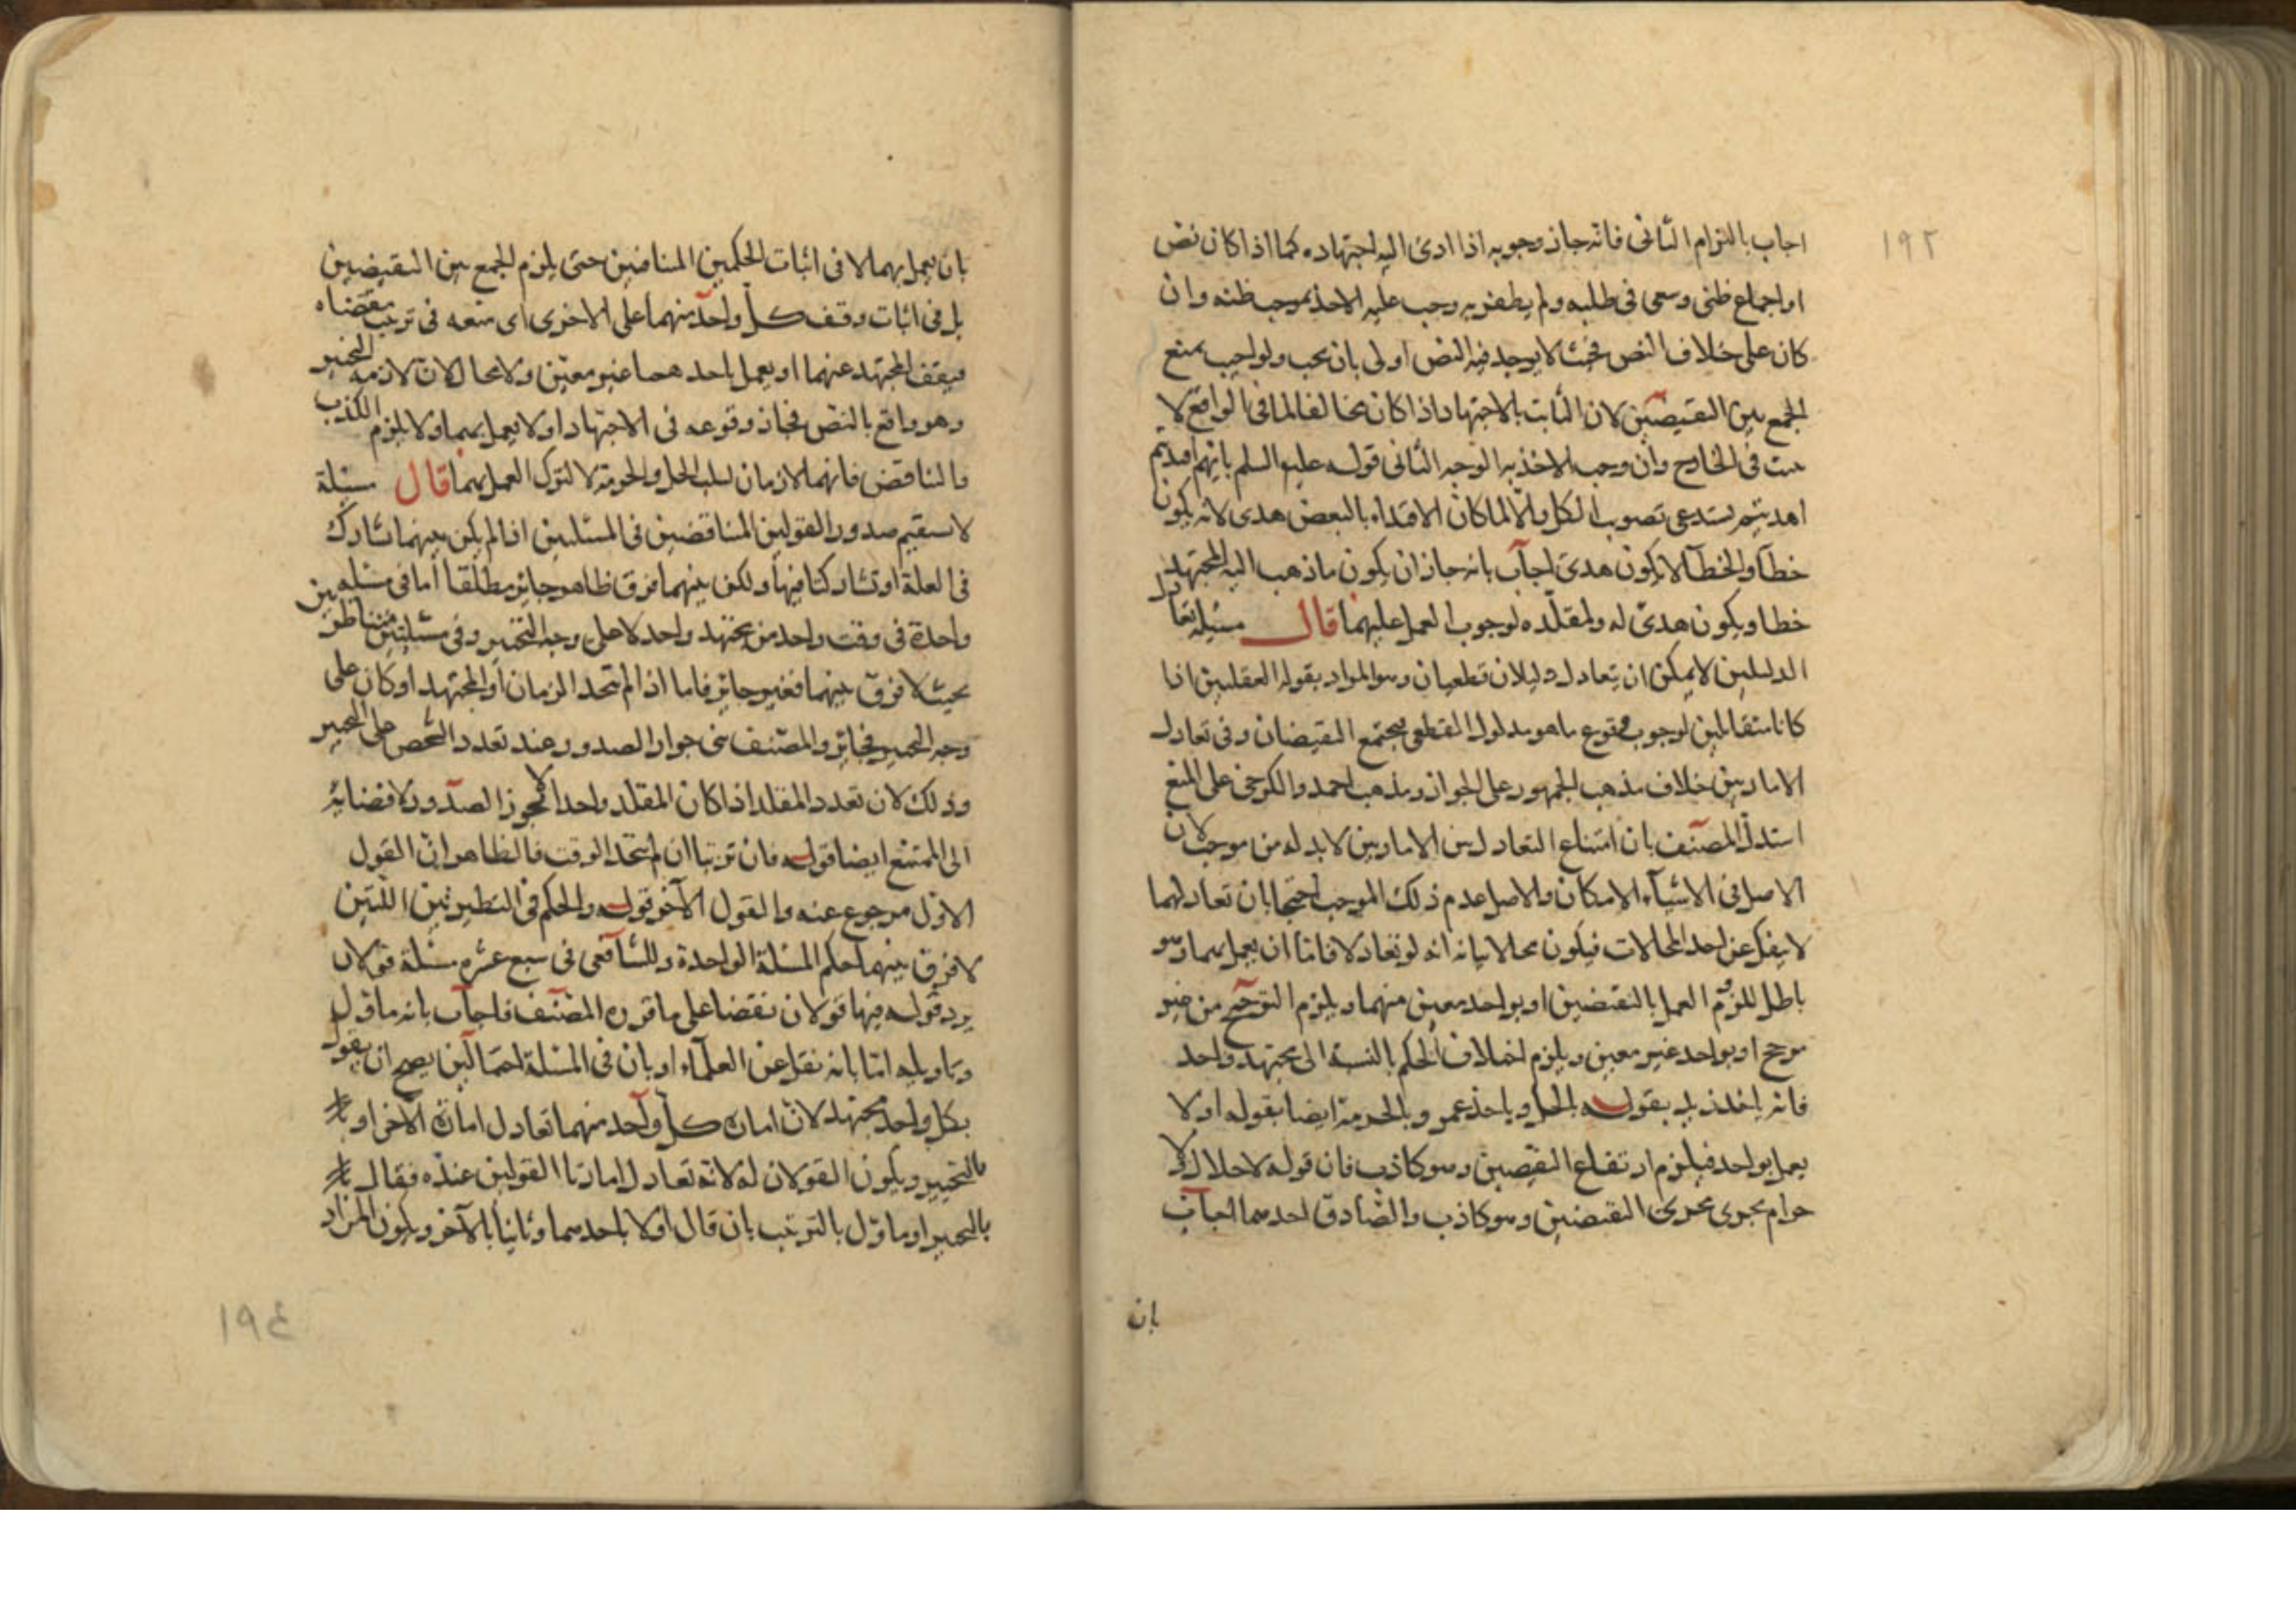 ١٩٢
اجاب بالتزام الثانى فانه جاز وجوبه اذا ادى اليه اجتهاده كما اذا كان نص
او اجماع ظنى وسعى فى طلبه ولم يظفر به وجب عليه الاخذ بموجب ظنه وان
كان على خلاف النص فحيث لا يوجد فيه النص اولى بان يجب ولو اجيب بمنع
الجمع بين النقيضين لان الثابت بالاجتهاد اذا كان مخالفا لما فى الواقع لا
يثبت فى الخارج وان وجب الاخذ به الوجه الثانى قوله عليه السلم بايهم اقتديتم
اهديتم يستدعى تصويب الكل والا لما كان الاقتداء بالبعض هدى لانه يكون
خطأ والخطأ لا يكون هدى اجاب بانه جاز ان يكون ما ذهب اليه المجتهد
خطا ويكون هدى له ولمقلده لوجوب العمل عليهما قال مسئلة تعادل
الدليلين لا يمكن ان يتعادل دليلان قطعيان وهو المراد بقوله العقليين اذا
كانا متقابلين لوجوب وقوع ما هو مدلول القطعى فيجتمع النقيضان وفى تعادل
الامارتين خلاف مذهب الجمهور على الجواز ومذهب احمد والكرخى على المنع
استدل المصنف بان امتناع التعادل بين الامارتين لا بد له من موجب لان
الاصل فى الاشياء الامكان والاصل عدم ذلك الموجب احتجا بان تعادلهما
لا ينفك عن احد المحالات فيكون محالا بيانه انه لو تعادلا فاما ان يعمل بهما وهو
باطل للزوم العمل بالنقيضين او بواحد معين منهما ويلزم الترجيح من غير
مرجح او بواحد غير معين ويلزم اختلاف الحكم بالنسبة الى مجتهد واحد
فانه ياخذ زيد بقوله بالحل وياخذ عمرو بالحرمة ايضا بقوله اولا
يعمل بواحد فيلزم ارتفاع النقيضين وهو كاذب فان قوله لا حلال ولا
حرام يجرى مجرى النقيضين وهو كاذب والصادق احدهما اجاب
بان
بان يعمل بهما لا فى اثبات الحكمين المتنافيين حتى يلزم الجمع بين النقيضين
بل فى اثبات وقف كل واحد منهما على الاخرى اى منعه فى ترتب مقتضاه
فيقف المجتهد عنهما او يعمل باحدهما غير معين ولا محال لان لازمه التخيير
وهو واقع بالنص فجاز وقوعه فى الاجتهاد او لا يعمل بهما ولا يلزم الكذب
والتناقض فانهما لازمان لسلب الحل والحرمة لا لترك العمل بهما قال مسئلة
لا يستقيم صدور القولين المتناقضين فى المسئلتين اذا لم يكن بينهما تشارك
فى العلة او تشاركتا فيها ولكن بينهما فرق ظاهر جائز مطلقا اما فى مسئلة
واحدة فى وقت واحد من مجتهد واحد لا على وجه التخيير وفى مسئلتين متناظرتين
بحيث لا فرق بينهما فغير جائز فاما اذا لم يتحد الزمان او المجتهد او كان على
وجه التخيير فجائز والمصنف بنى جواز الصدور عند تعدد الشخص على التخيير
وذلك لان تعدد المقلد اذا كان المقلد واحدا لا يجوز الصدور لافضائه
الى الممتنع ايضا قوله فان ترتبا ان لم يتحد الوقت فالظاهر ان القول
الاول مرجوع عنه والقول الآخر قوله والحكم فى النظيرتين اللتين
لا فرق بينهما حكم المسئلة الواحدة وللشافعى فى سبع عشرة مسئلة قولان
يرد قوله فيها قولان نقضا على ما قرره المصنف فاجاب بانه ماؤل
وتاويله اما بانه نقل عن العلماء او بان فى المسئلة احتمالين يصح ان يقول
بكل واحد مجتهد لان امارة كل واحد منهما تعادل امارة الآخر او
بالتخيير ويكون القولان له لانه تعادل امارتا القولين عنده فقال
بالتخيير او ماؤل بالترتيب بان قال اولا باحدهما وثانيا بالآخر ويكون المراد
١٩٤